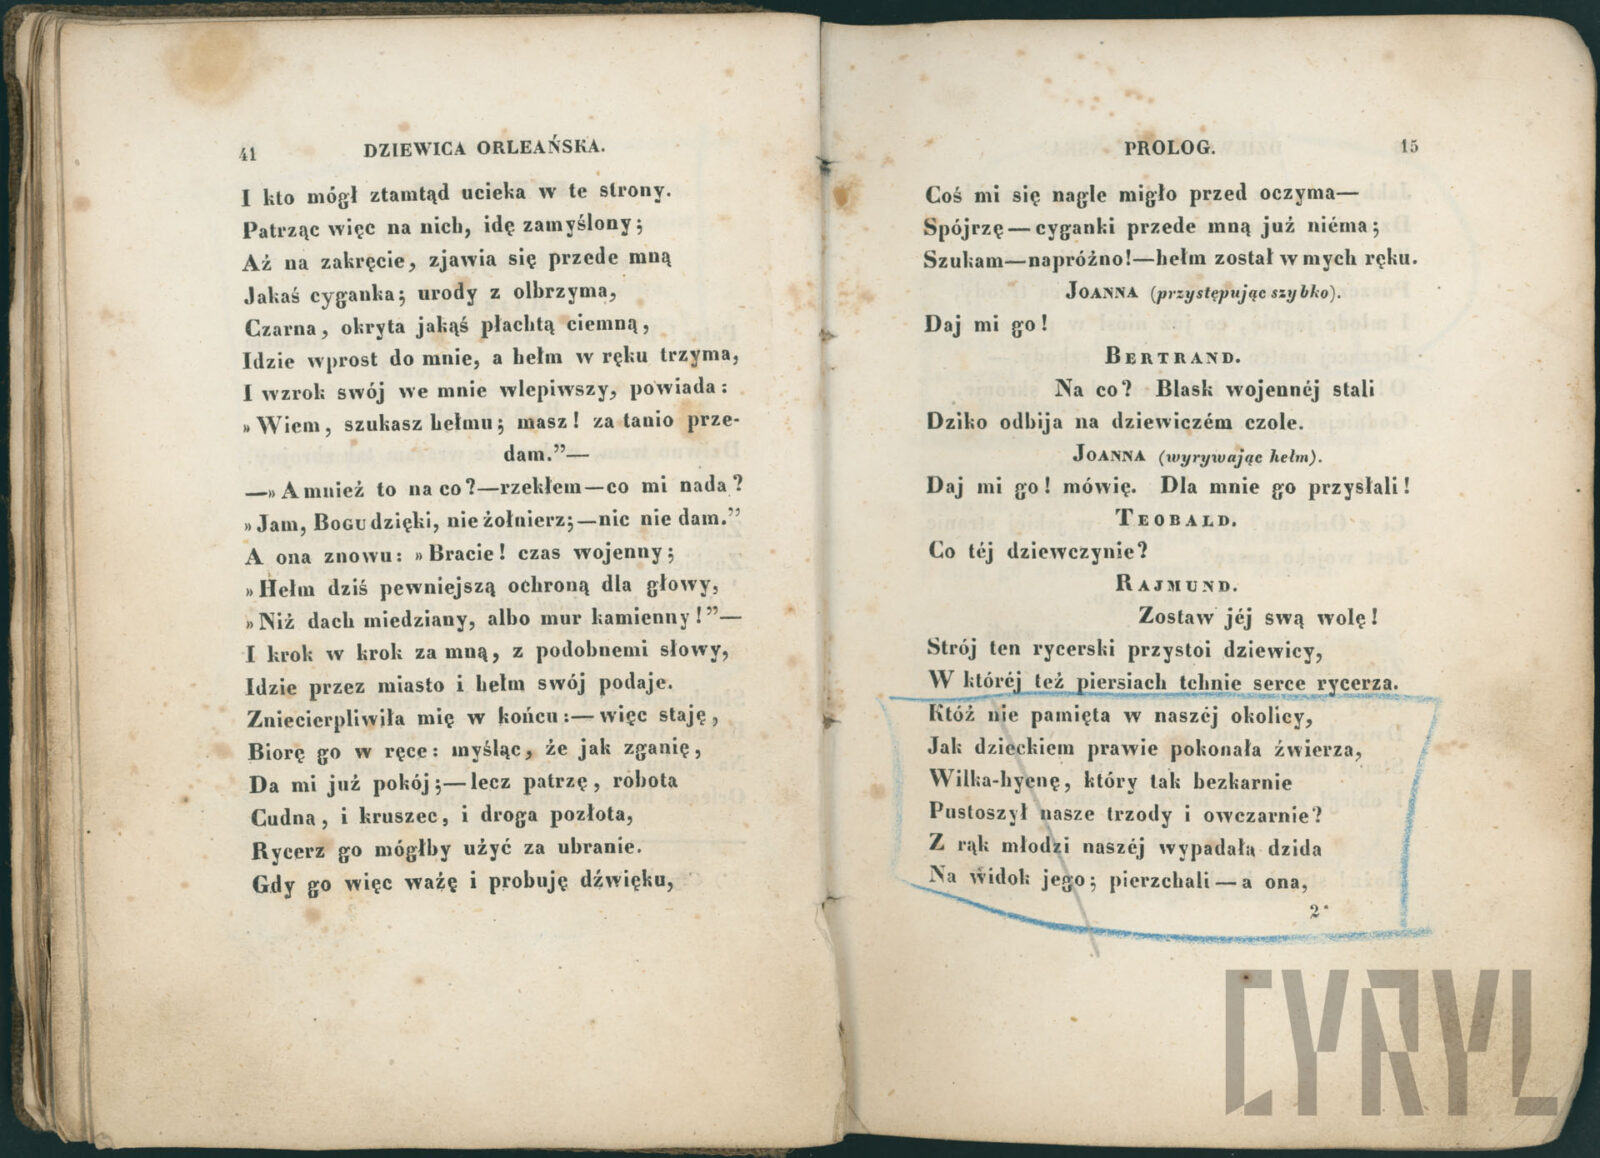 41 DZIEWICA ORLEAŃSKA.
I kto mógł ztamtąd ucieka w te strony.
Patrząc więc na nich, idę zamyślony;
Aż na zakręcie, zjawia się przede mną
Jakaś cyganka; urody z olbrzyma,
Czarna, okryta jakąś płachtą ciemną,
Idzie wprost do mnie, a hełm w ręku trzyma,
I wzrok swój we mnie wlepiwszy, powiada:
»Wiem, szukasz hełmu; masz! za tanio prze-
dam.”—
—»A mnież to na co?—rzekłem—co mi nada?
»Jam, BOGU dzięki, nie żołnierz;—nic nie dam.”
A ona znowu: »Bracie! czas wojenny;
»Hełm dziś pewniejszą ochroną dla głowy,
»Niż dach miedziany, albo mur kamienny!”—
I krok w krok za mną, z podobnemi słowy,
Idzie przez miasto i hełm swój podaje.
Zniecierpliwiła mię w końcu:—więc staję,
Biorę go w ręce: myśląc, że jak zganię,
Da mi już pokój;—lecz patrzę, robota
Cudna, i kruszec, i droga pozłota,
Rycerz go mógłby użyć za ubranie.
Gdy go więc ważę i probuję dźwięku,
PROLOG. 15
Coś mi się nagle migło przed oczyma—
Spójrzę—cyganki przede mną już niéma;
Szukam—napróżno!—hełm został w mych ręku.
JOANNA (przystępując szybko).
Daj mi go!
BERTRAND.
Na co? Blask wojennéj stali
Dziko odbija na dziewiczém czole.
JOANNA (wyrywając hełm).
Daj mi go! mówię. Dla mnie go przysłali!
TEOBALD.
Co téj dziewczynie?
RAJMUND.
Zostaw jéj swą wolę!
Strój ten rycerski przystoi dziewicy,
W któréj też piersiach tchnie serce rycerza.
Któż nie pamięta w naszéj okolicy,
Jak dzieckiem prawie pokonała źwierza,
Wilka-hyenę, który tak bezkarnie
Pustoszył nasze trzody i owczarnie?
Z rąk młodzi naszéj wypadała dzida
Na widok jego; pierzchali—a ona,
2*
CYRYL